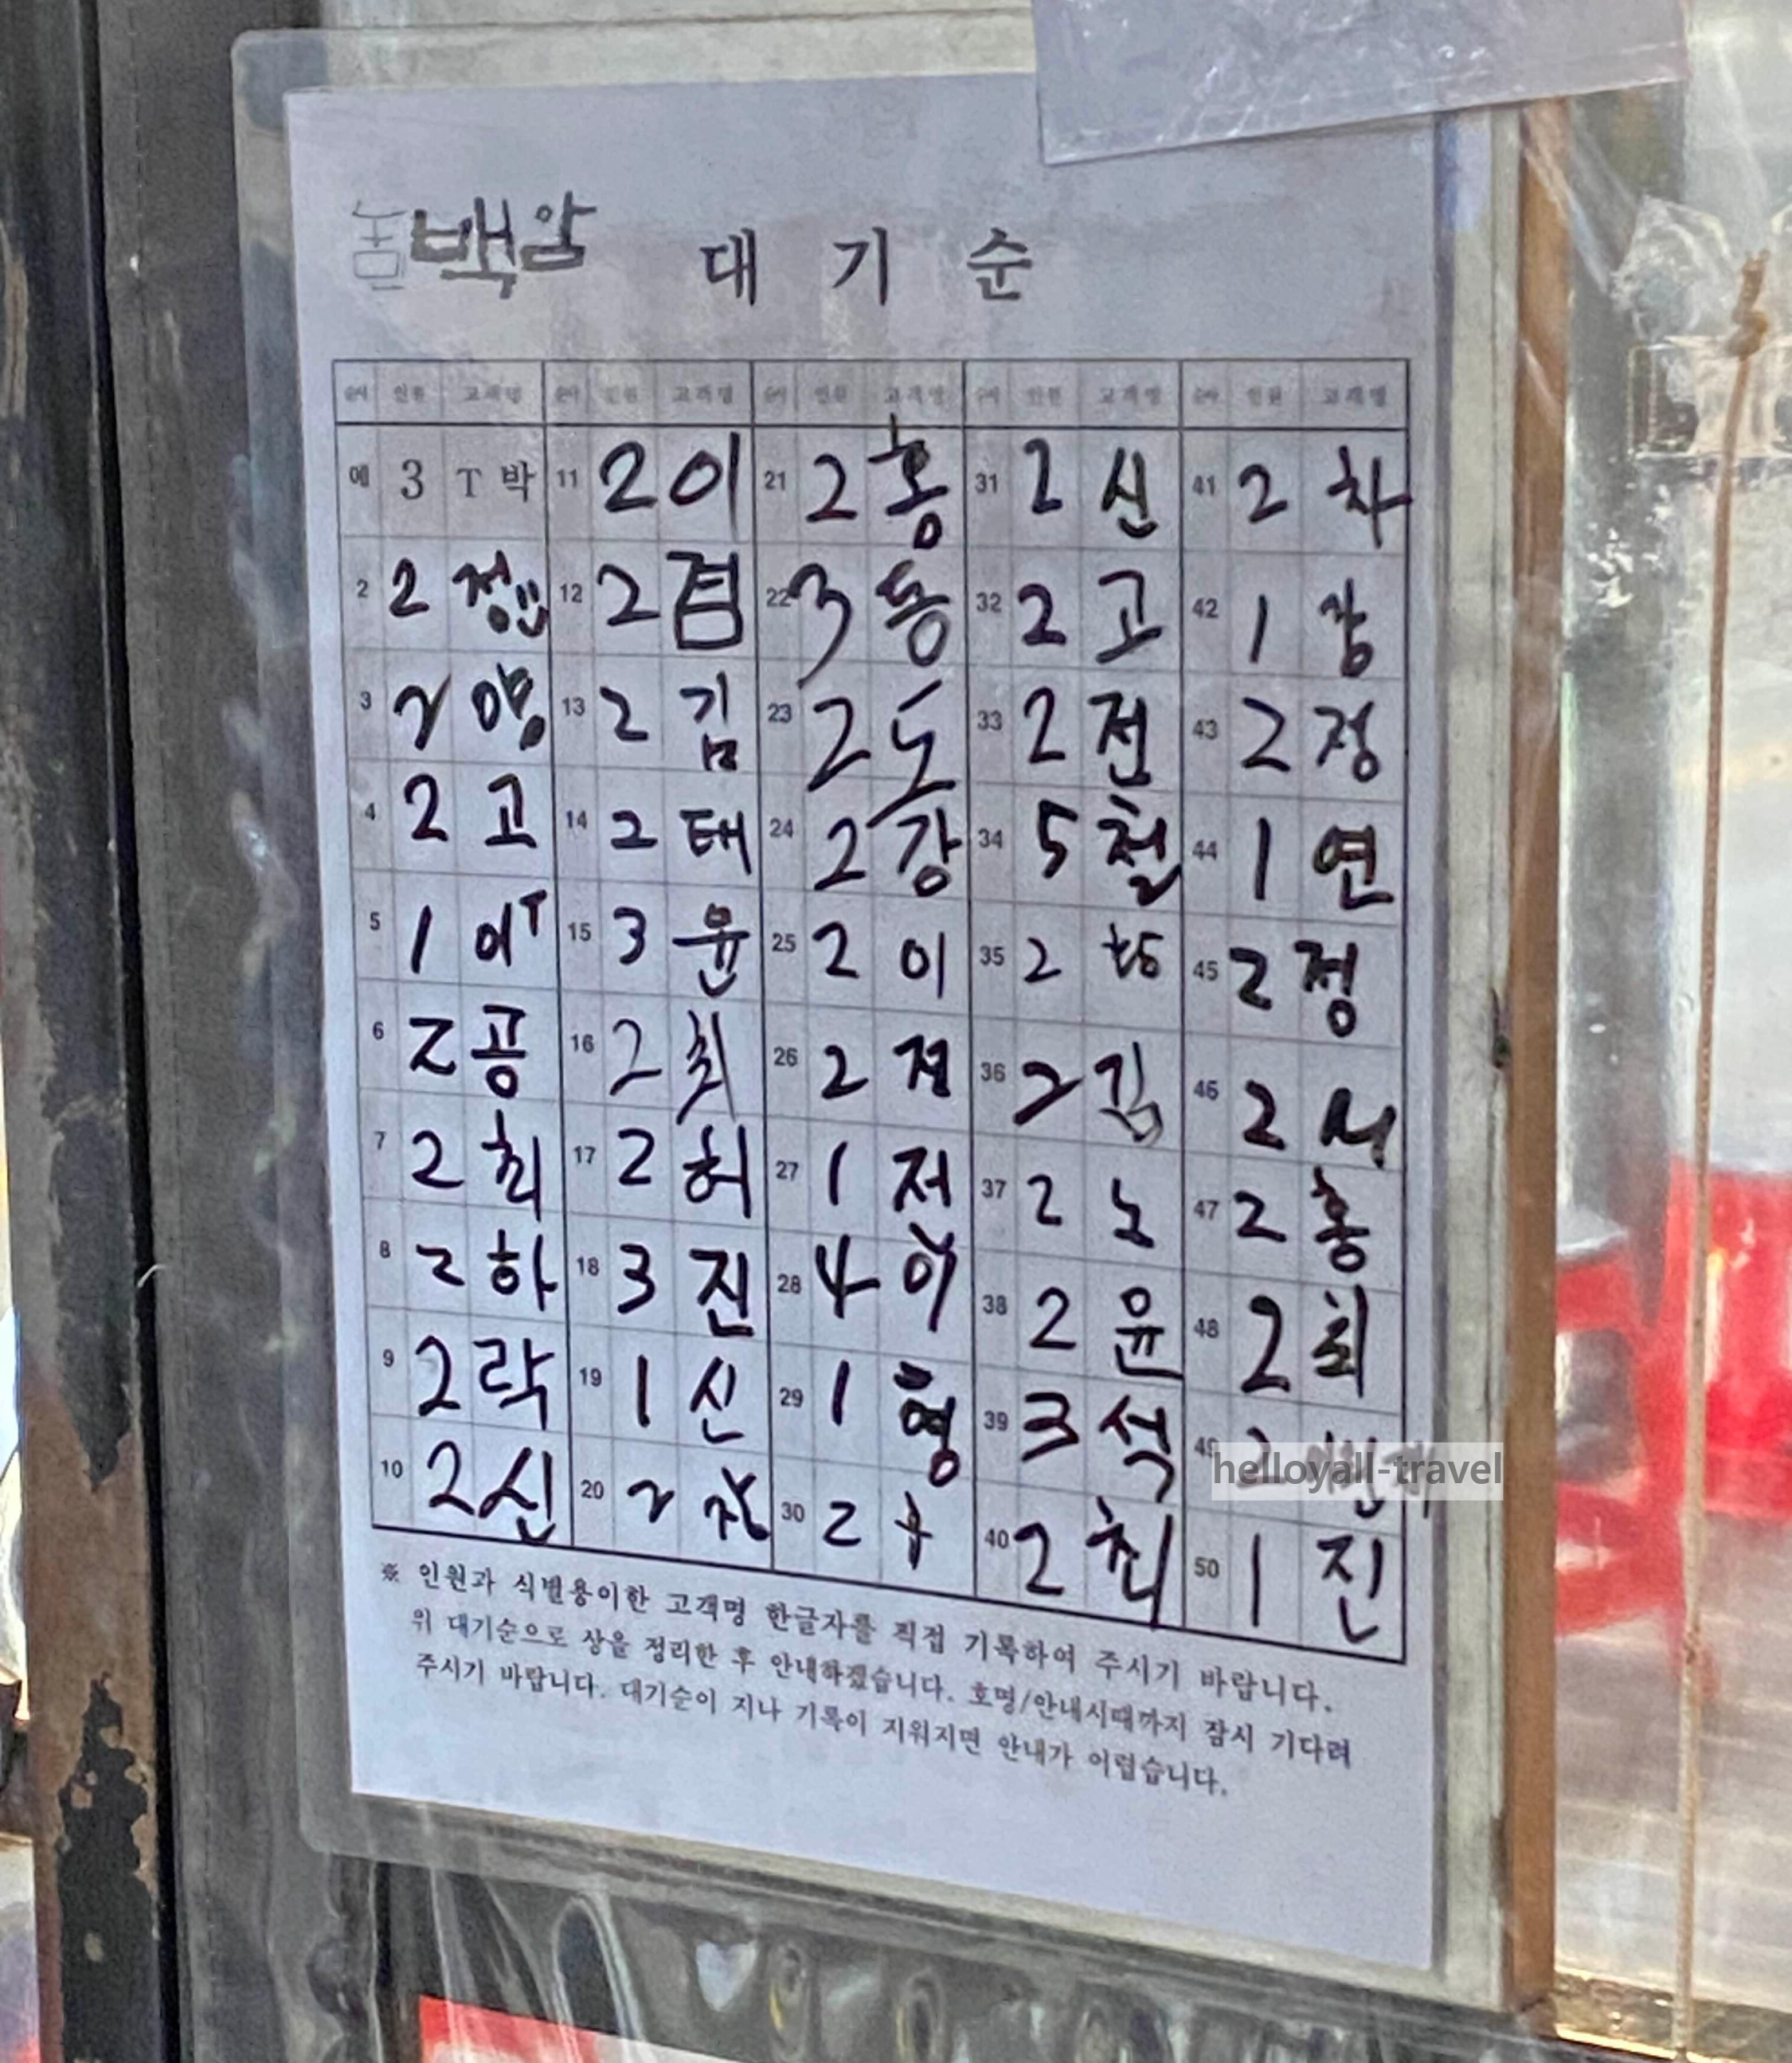 농민백암 대기순
순서 인원 고객명 순서 인원 고객명 순서 인원 고객명 순서 인원 고객명 순서 인원 고객명
예 3 T 박 11 2 이 21 2 홍 31 2 신 41 2 차
2 2 12 2 겸 22 3 동 32 2 고 42 1 강
3 2 양 13 2 김 23 2 도 33 2 전 43 2 정
4 2 고 14 2 태 24 2 강 34 5 철 44 1 연
5 1 이T 15 3 윤 25 2 이 35 2 45 2 정
6 2 공 16 2 최 26 2 36 2 김 46 2 서
7 2 최 17 2 허 27 1 저 37 2 노 47 2 홍
8 2 하 18 3 진 28 4 이 38 2 윤 48 2 최
9 2 락 19 1 신 29 1 형 39 3 석 49 2
10 2 신 20 2 30 2 40 2 최 50 1 진
※ 인원과 식별용이한 고객명 한글자를 직접 기록하여 주시기 바랍니다.
위 대기순으로 상을 정리한 후 안내하겠습니다. 호명/안내시때까지 잠시 기다려
주시기 바랍니다. 대기순이 지나 기록이 지워지면 안내가 어렵습니다.
helloyall-travel